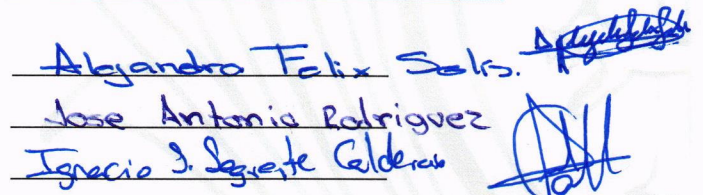 Alejandro Felix Solis.
Jose Antonio Rodriguez
Ignacio J. Calderon